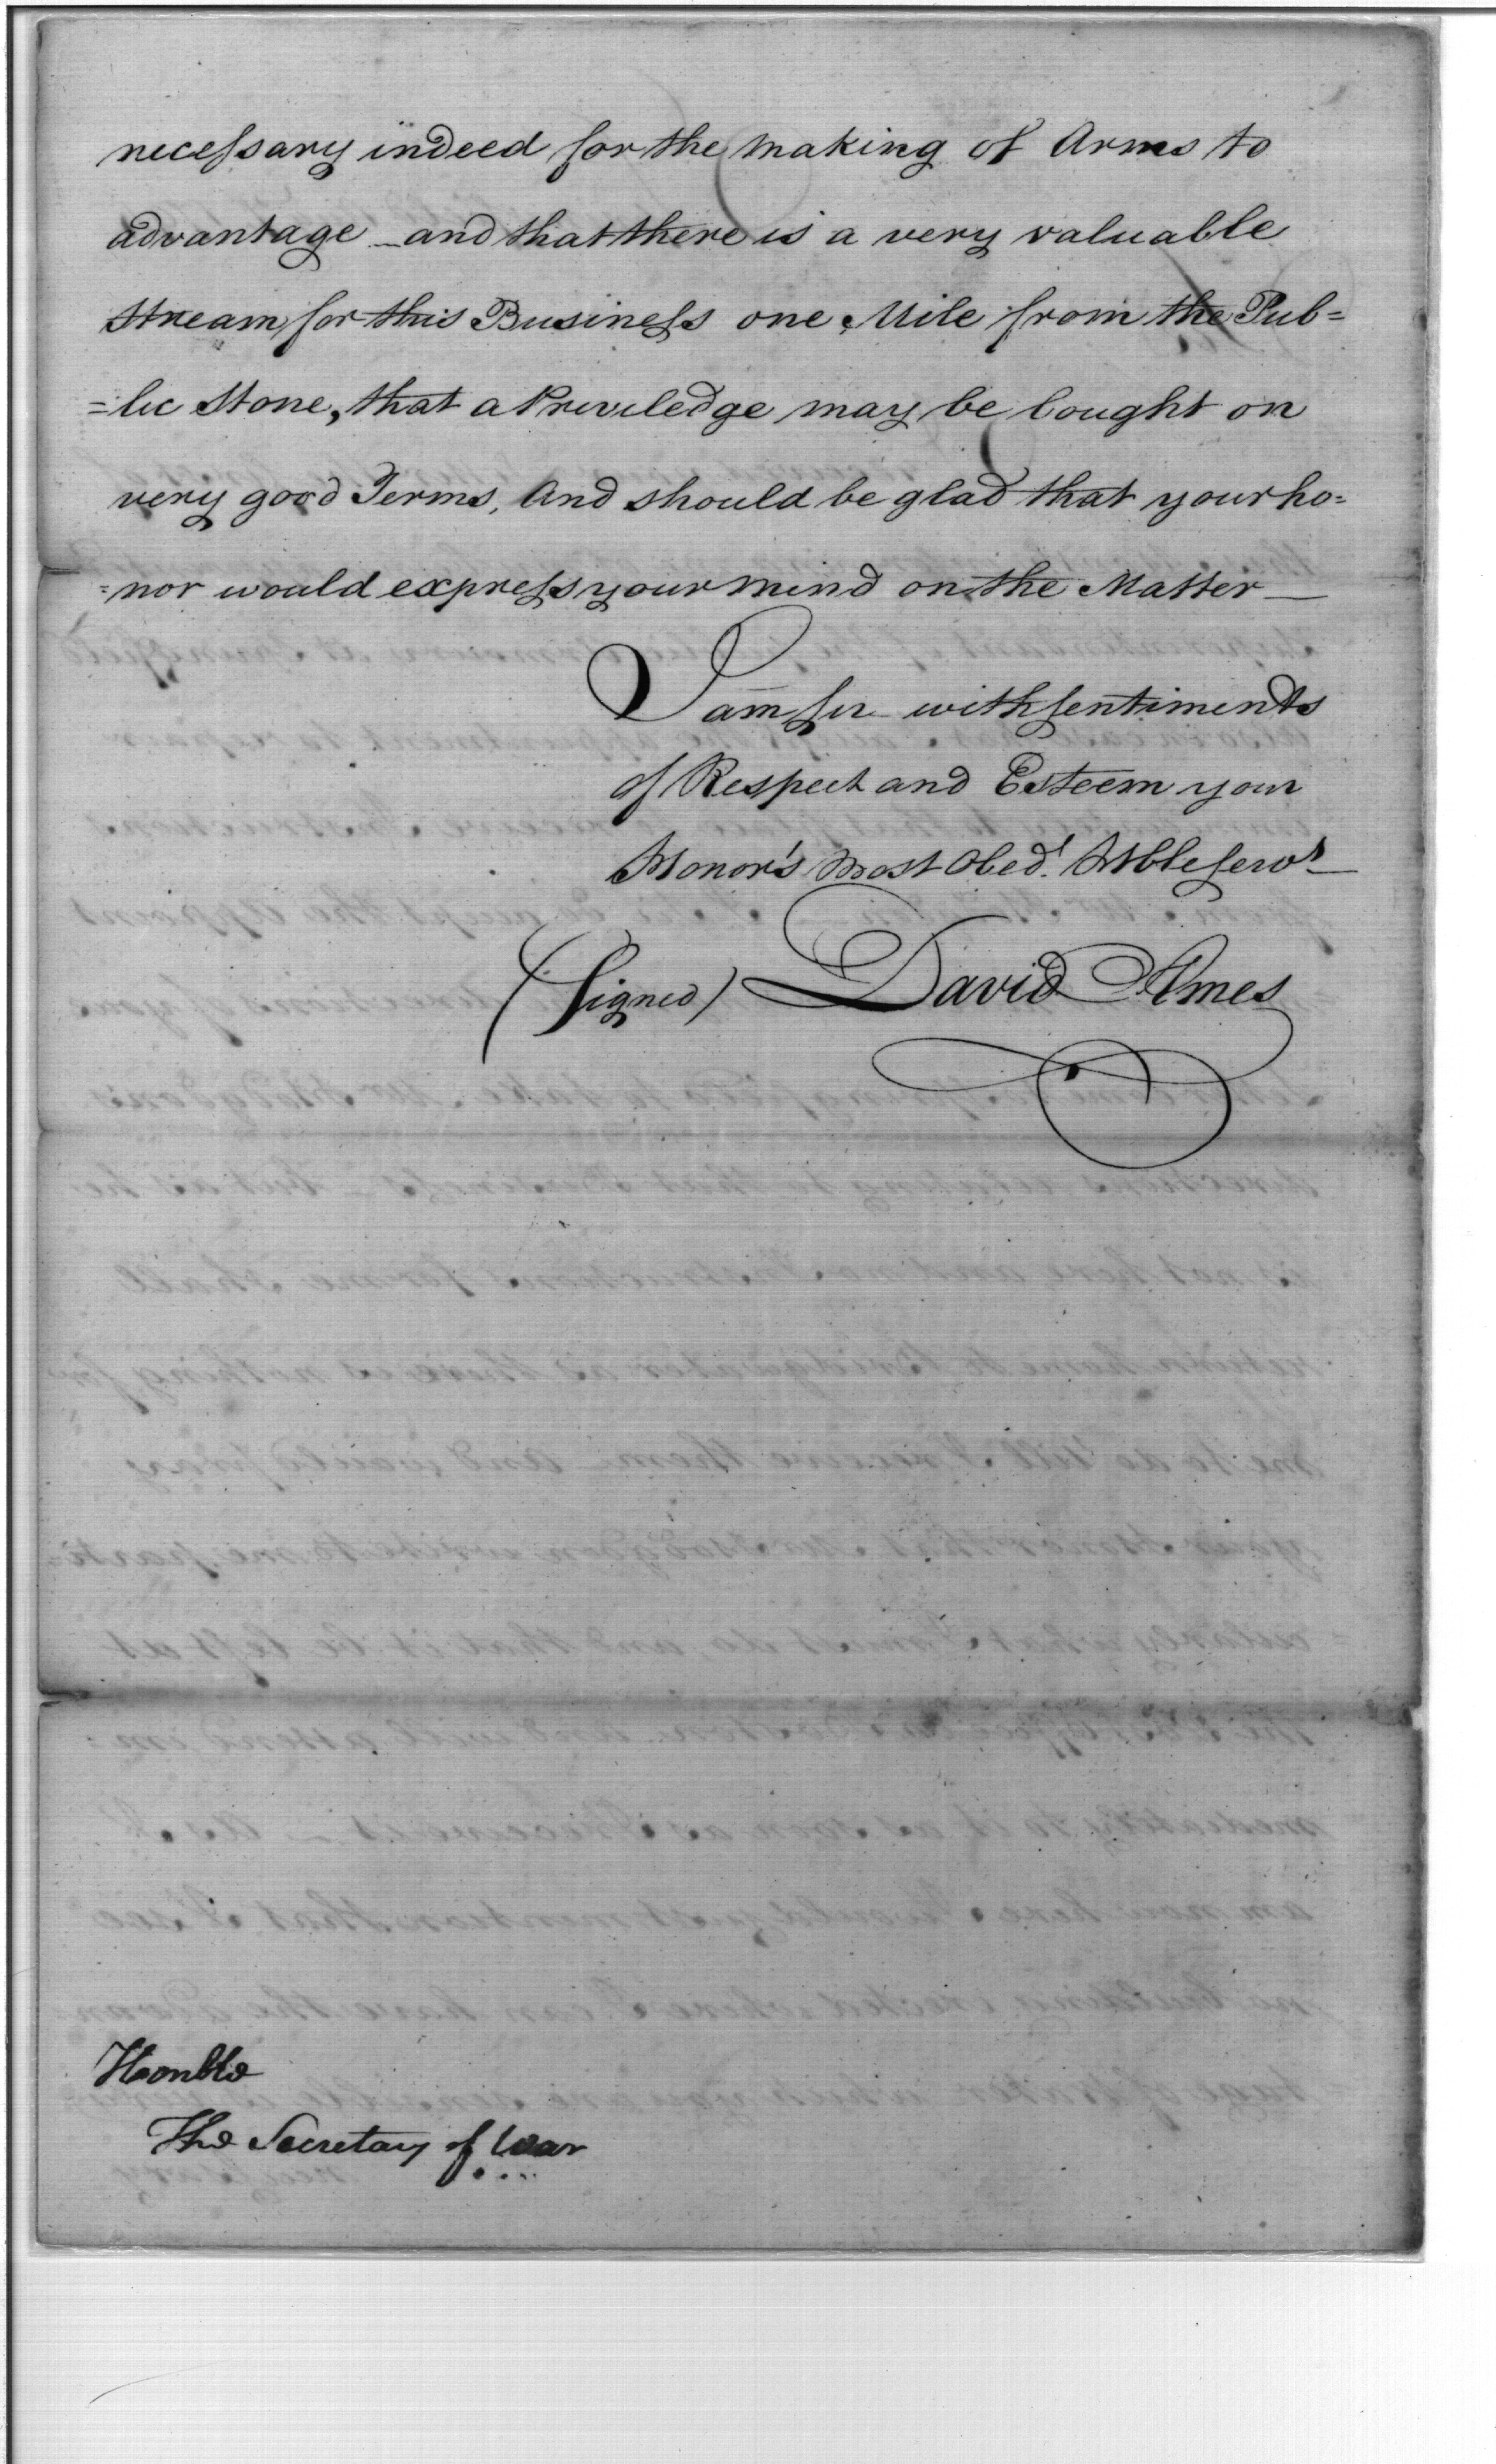 necessary indeed for the making of Arms to
advantage _ and that there is a very valuable
Stream for this Business one Mile from the Pub=
=lic Stone, that a Priviledge may be bought on
very good Terms, And should be glad that your ho=
=nor would express your mind on the Matter —
I am sir with sentiments
of Respect and Esteem your
Honor's Most Obed.t Hble serv.t —
(Signed) David Ames
Honble
The Secretary of War